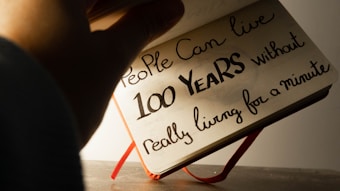 PeoPle Can live
100 YeaRS without
really living for a minute